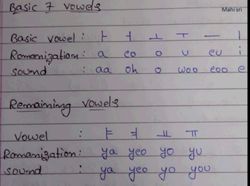 Basic 7 vowels
Mahrari
Basic vowel : ㅏ ㅓ ㅗ ㅜ ㅡ ㅣ
Romanization : a eo o u eu i
sound : aa oh o woo eoo e
Remaining vowels
vowel : ㅑ ㅕ ㅛ ㅠ
Romanization : ya yeo yo yu
sound : ya yeo yo you